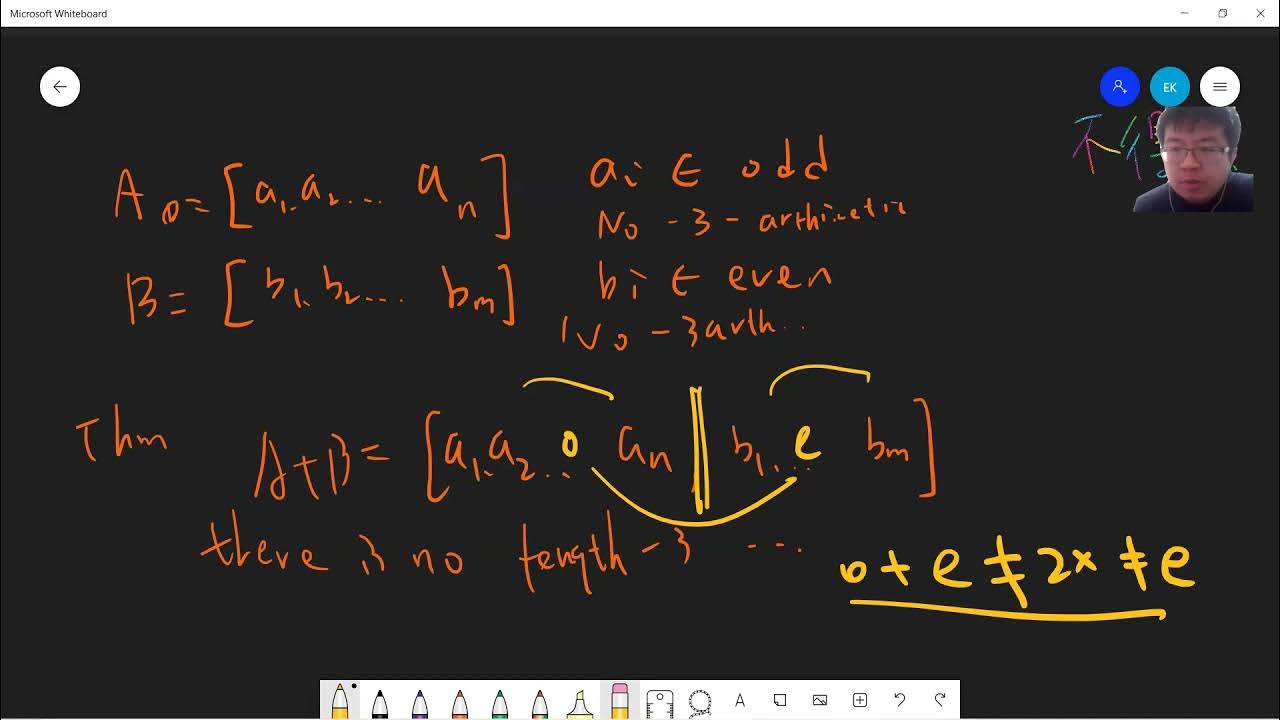 Microsoft Whiteboard
EK
A0 = [a1, a2 ... an] ai ∈ odd
No -3- arthimetic
B = [b1, b2 ... bm] bi ∈ even
No - 3 arth..
Thm A+B = [a1, a2 ... o an, b1, ... e bm]
there is no length-3 ...
o + e ≠ 2x ≠ e
A